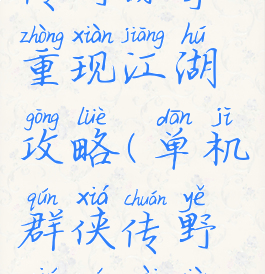 zhòng xiàn jiāng hú
重现江湖
gōng lüè dān jī
攻略(单机
qún xiá chuán yě
群侠传野